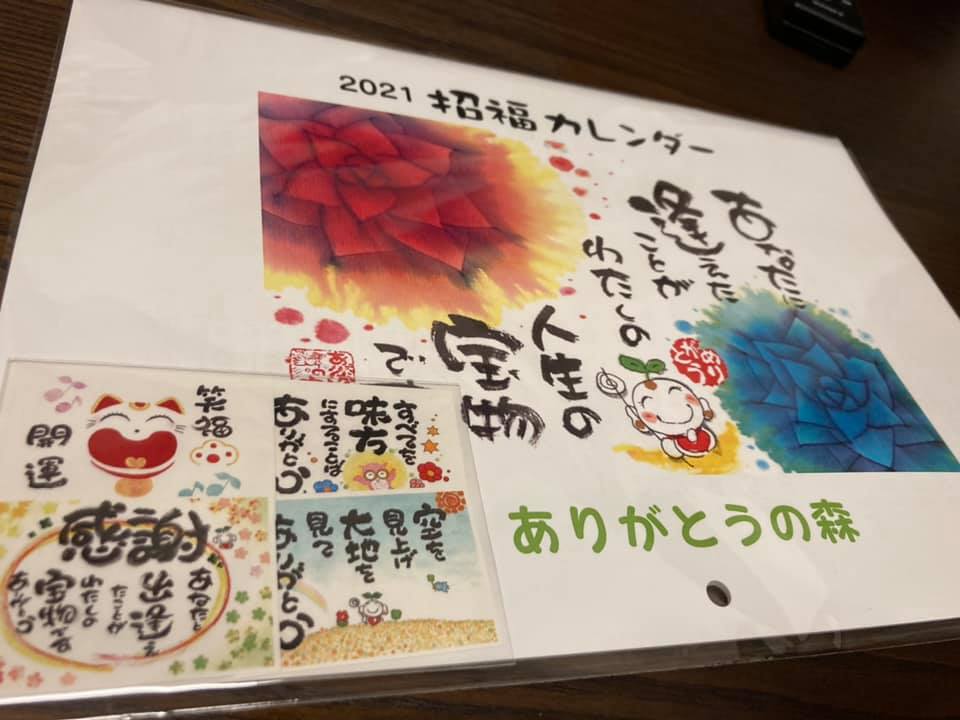 2021 招福カレンダー
あなたに
逢えた
ことが
わたしの
人生の
宝物
で
ありがとう
ありがとうの森
笑福
開運
すべてを
味方
にする
ありがとう
感謝
あなたと
出逢え
たことが
わたしの
宝物です
ありがとう
空を
見上げ
大地を
見て
ありがとう